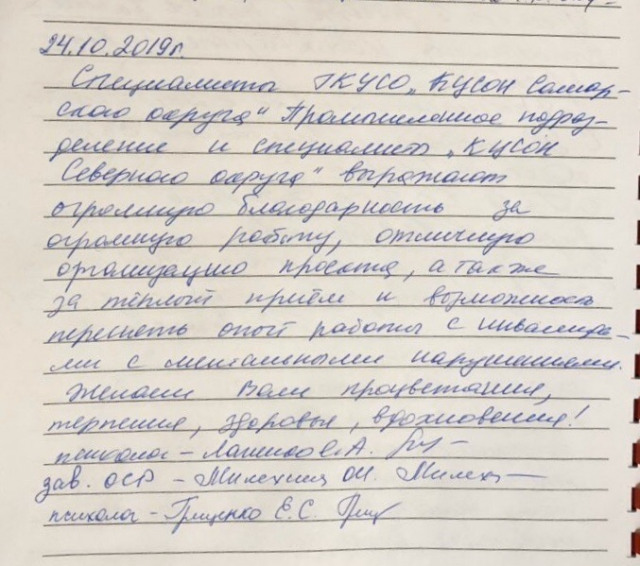 24.10.2019г.
Специалисты ГКУСО „КЦСОН Самар-
ского округа" Промышленное подраз-
деление и специалисты „КЦСОН
Северного округа" выражают
огромную благодарность за
огромную работу, отличную
организацию проекта, а также
за тёплый приём и возможность
перенять опыт работы с инвалида-
ми с ментальными нарушениями.
Желаем Вам процветания,
терпения, здоровья, вдохновения!
психолог – С.А.
зав. ОСР – Милехина О.И.
психолог – Грищенко Е.С.